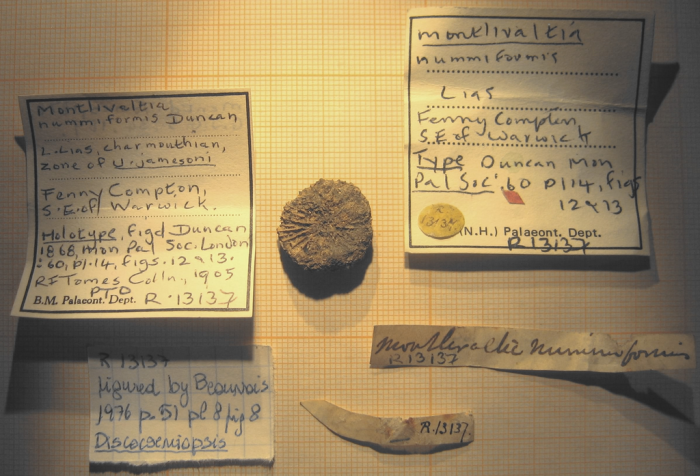 Montlivaltia
nummiformis Duncan
L. Lias, charmouthian,
zone of U. jamesoni
Fenny Compton,
S.E. of Warwick.
Holotype, figd Duncan
1868, Mon Pal Soc. London
:60, pl.14, figs. 12 & 13.
R F Tomes Colln., 1905
PTO
B.M. Palaeont. Dept. R.13137
Montlivaltia
nummiformis
Lias
Fenny Compton,
S.E of Warwick
Type Duncan Mon
Pal Soc: 60 pl.14, figs
12 & 13
R
13137
(N.H.) Palaeont. Dept.
R 13137
R 13137
figured by Beauvais
1976 p. 51 pl 8 fig 8
Discocoeniopsis
Montlivaltia nummiformis
R 13137
R.13137